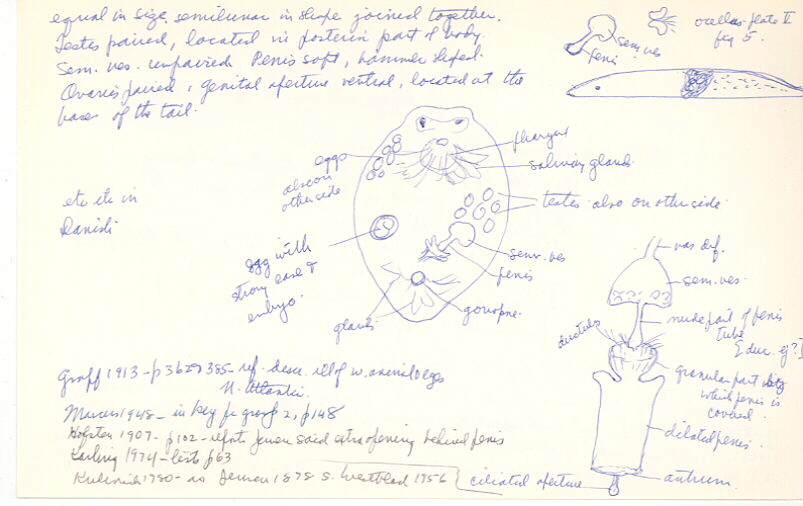 equal in size, semilunar in shape joined together.
Testes paired, located in posterior part of body.
Sem. ves. unpaired. Penis soft, hammer shaped.
Ovaries paired, genital aperture ventral, located at the
base of the tail.
ocellus - plate V
fig 5.
sem ves
penis
eggs
also on
other side
pharynx
salivary glands
testes also on other side
etc etc in
Danish
egg with
strong case &
embryo.
sem. ves
penis
glands
gonopore
vas def.
sem. ves.
nude part of penis
tube
& duc. ej?
ductules
granular part
which penis is
covered
dilated penis
antrum
ciliated aperture
Graff 1913 - p 362 & 385 - ref. descr. w. animal & eggs
N. Atlantic
Marcus 1948 - in key for group 2, p 148
Hofsten 1907 - p 102 - reports Jensen said extra opening behind penis
Karling 1974 - lists p 63
1980 - as Jensen 1878 & Westblad 1956